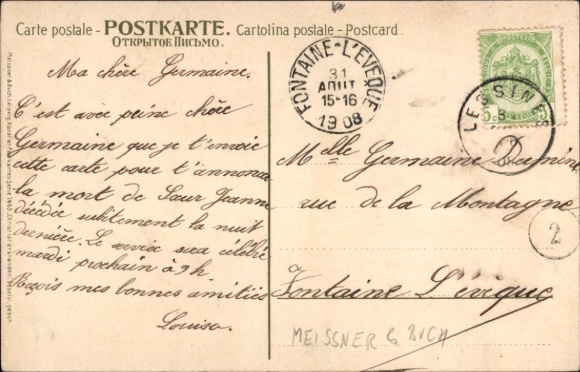 Carte postale - POSTKARTE. Cartolina postale - Postcard
Открытое Письмо.
Ma chère Germaine.
C'est avec peine chère
Germaine que je t'envoie
cette carte pour t'annoncer
la mort de Sœur Jeanne
décédée subitement la nuit
dernière. Le service sera célébré
mardi prochain à 9 h
Reçois mes bonnes amitiés
Louisa.
FONTAINE-L'EVEQUE
31
AOUT
15-16
1908
LESSINES
Melle Germaine
rue de la Montagne
2
Fontaine L'évêque
MEISSNER & BUCH